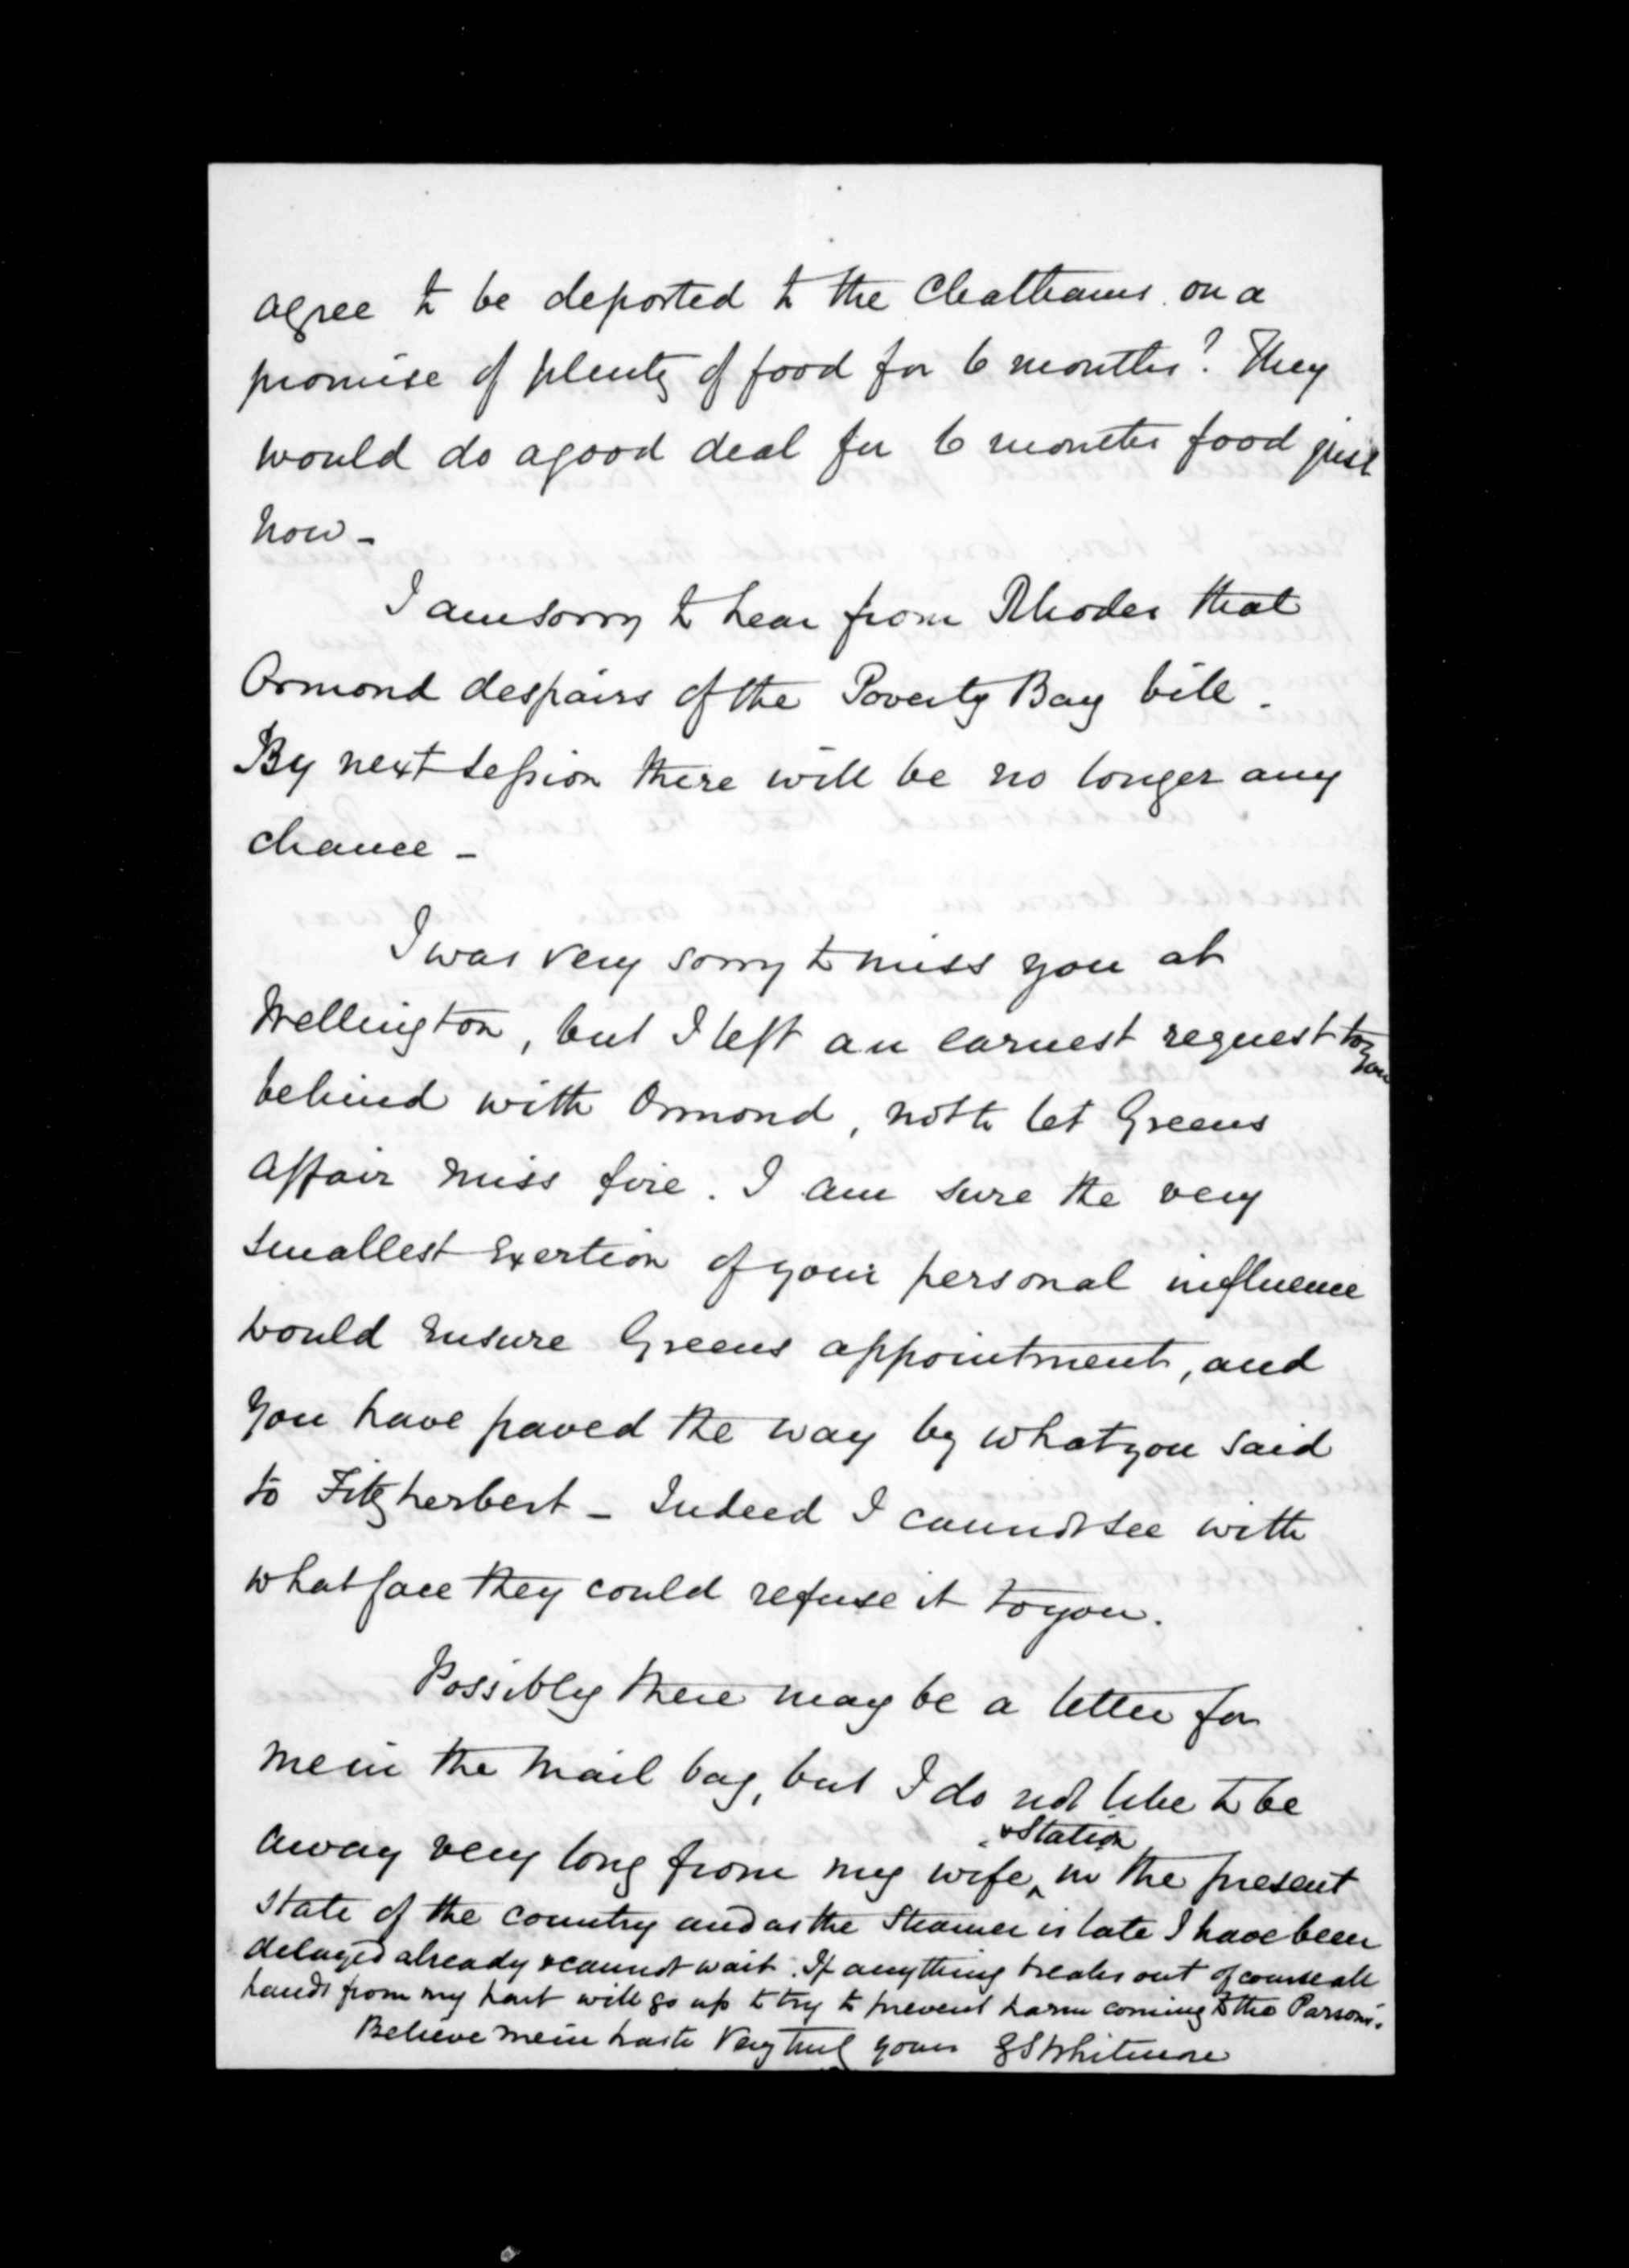 agree to be deported to the Chathams on a
promise of plenty of food for 6 months? They
would do a good deal for 6 months food just
now -
I am sorry to hear from Rhodes that
Ormond despairs of the Poverty Bay bill.
By next session there will be no longer any
chance -
I was very sorry to miss you at
Wellington, but I left an earnest request to you
behind with Ormond, not to let Greens
affair miss fire. I am sure the very
smallest exertion of your personal influence
would ensure Greens appointment, and
you have paved the way by what you said
to Fitzherbert - Indeed I cannot see with
what face they could refuse it to you.
Possibly there may be a letter for
me in the mail bag, but I do not like to be
& Station
away very long from my wife in the present
state of the country and as the Steamer is late I have been
delayed already & cannot wait. If anything breaks out of course all
hands from my part will go up to try to prevent harm coming to the Parsons.
Believe me in haste Very truly yours GS Whitmore